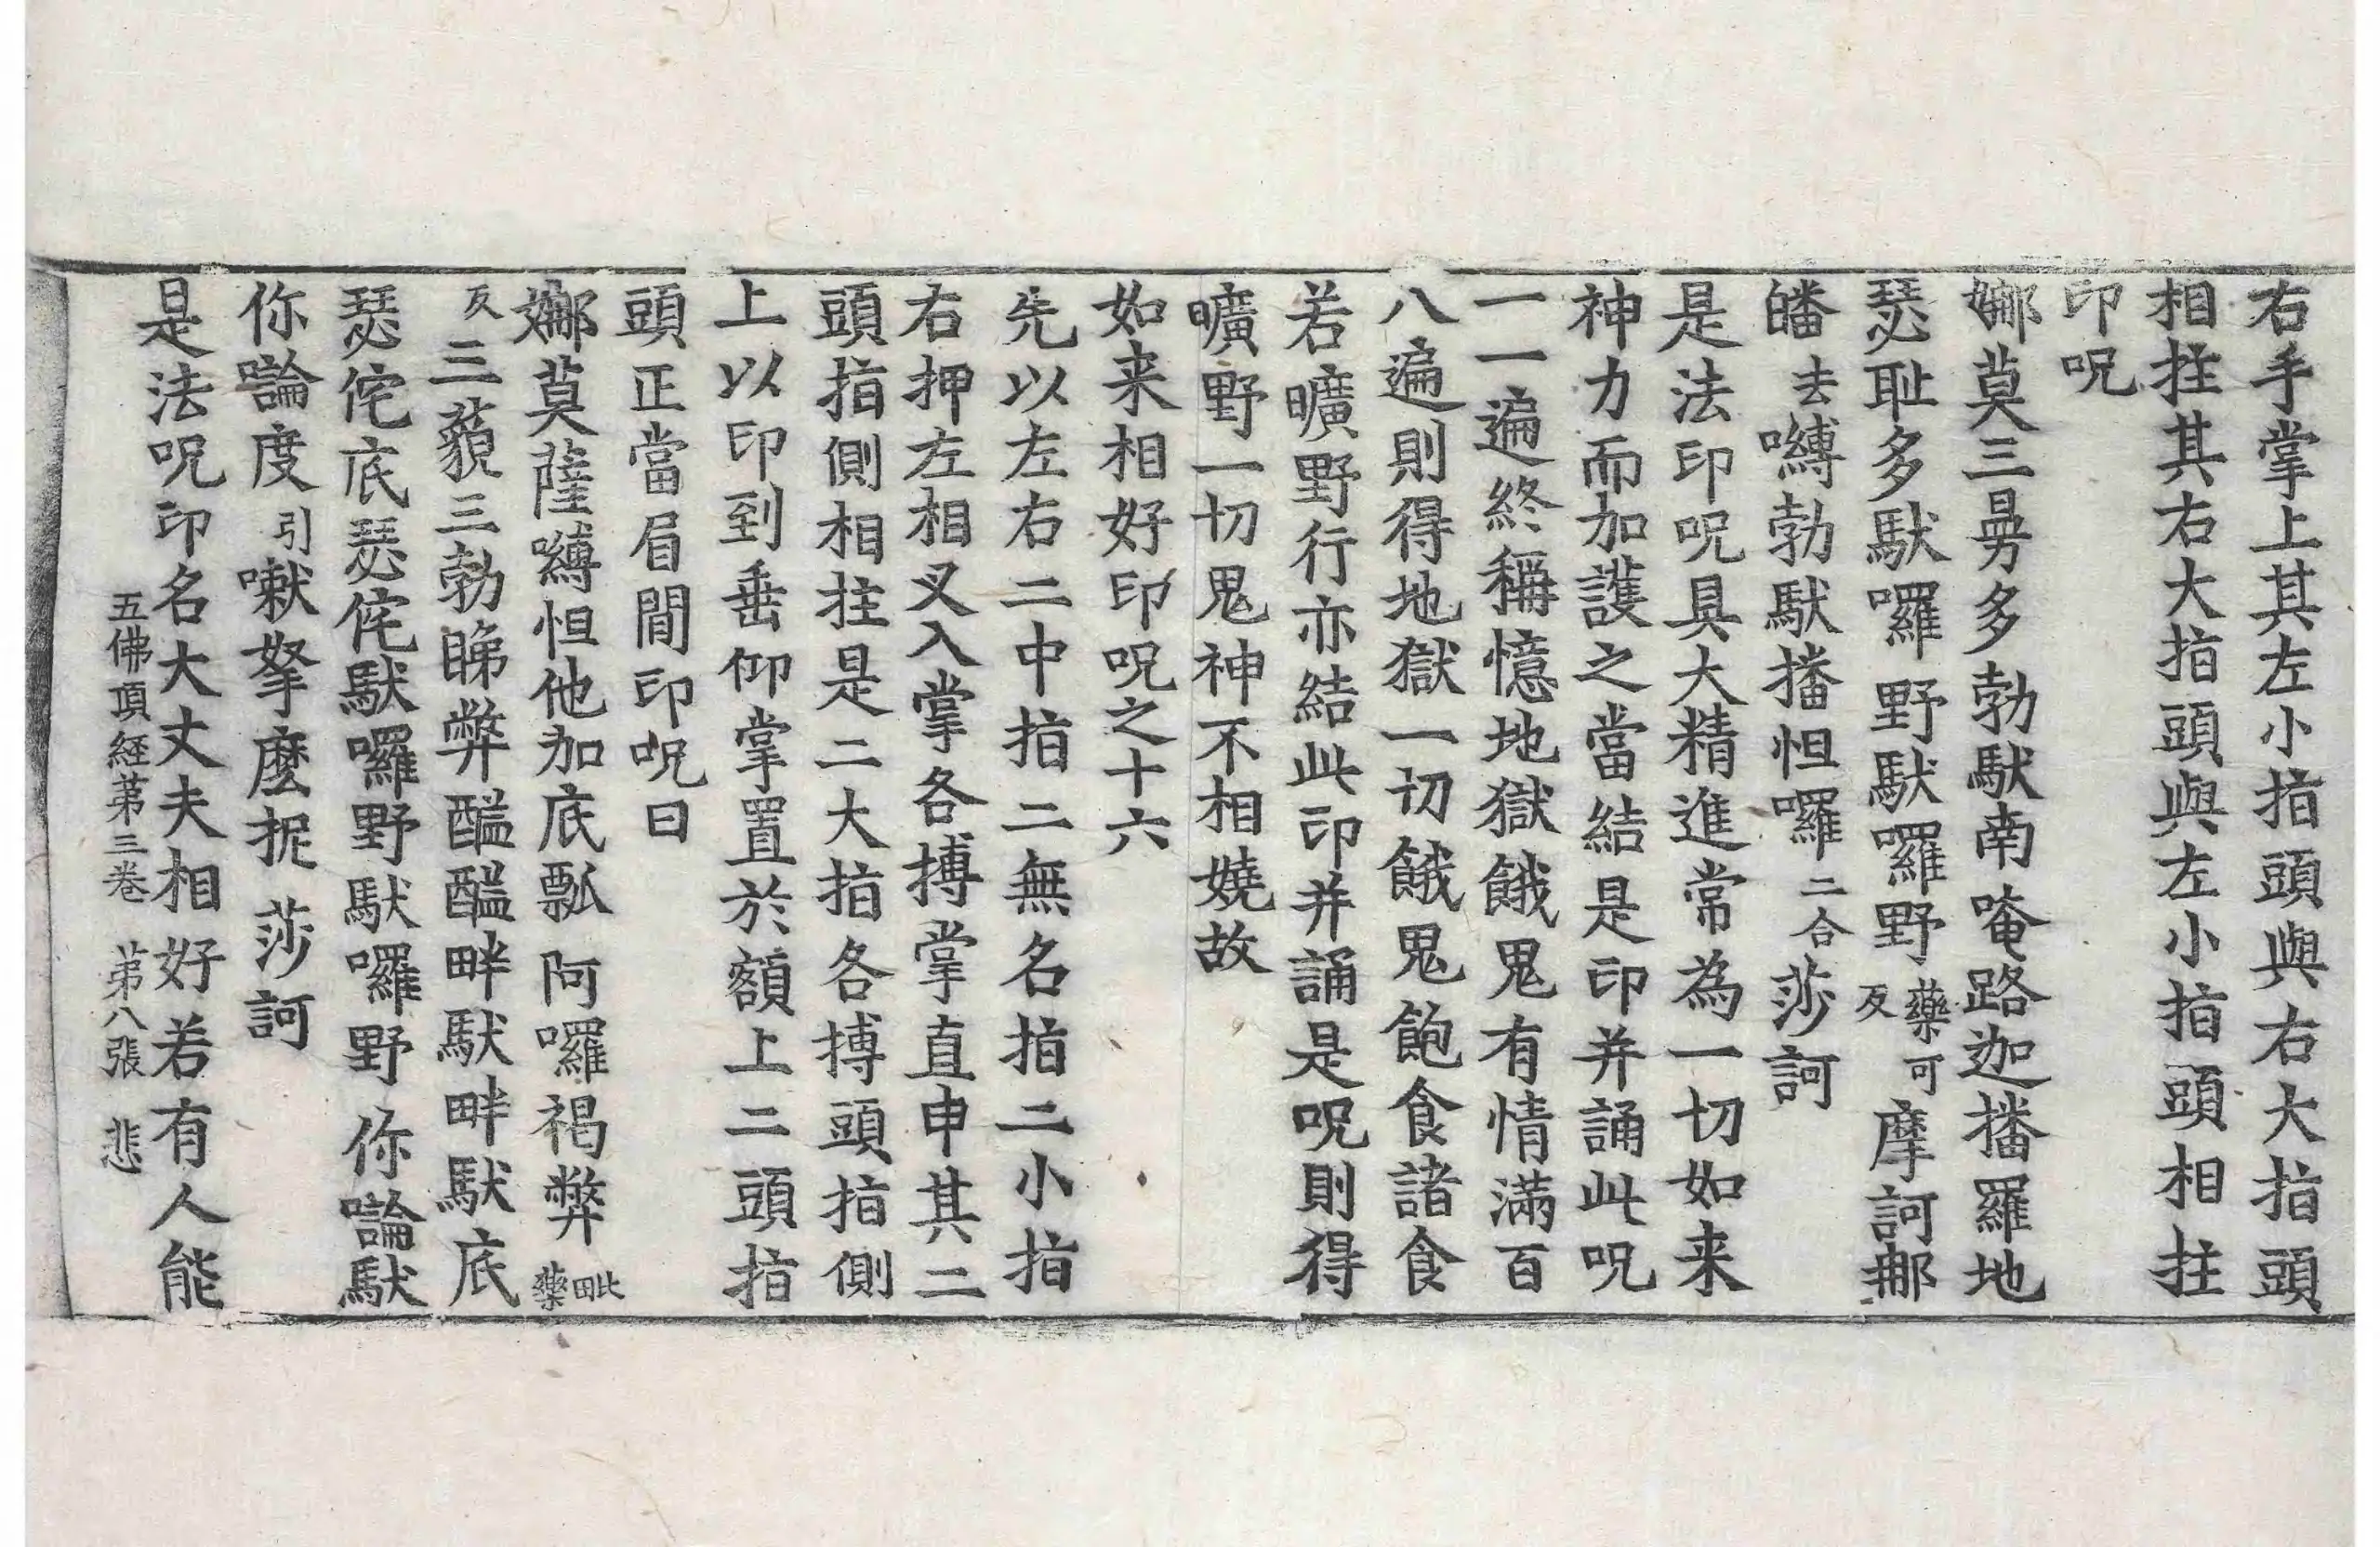 右手掌上其左小指頭與右大指頭
相拄其右大指頭與左小指頭相拄
印呪
娜莫三曼多勃馱南唵路迦播羅地
瑟耻多馱囉野馱囉野藥可反摩訶耶
皤去嚩勃馱播怛囉二合莎訶
是法印呪具大精進常為一切如来
神力而加護之當結是印并誦此呪
一一遍終稱憶地獄餓鬼有情滿百
八遍則得地獄一切餓鬼飽食諸食
若曠野行亦結此印并誦是呪則得
曠野一切鬼神不相嬈故
如来相好印呪之十六
先以左右二中指二無名指二小指
右押左相叉入掌各搏掌直申其二
頭指側相拄是二大指各搏頭指側
上以印到垂仰掌置於額上二頭指
頭正當眉間印呪曰
娜莫薩嚩怛他加底瓢阿囉褐弊毗藥
反三藐三勃睇弊醯醯畔馱畔馱底
瑟侘底瑟侘馱囉野馱囉野你㘕馱
你㘕度引嗽拏麼抳莎訶
是法呪印名大丈夫相好若有人能
五佛頂經苐三卷 苐八張 悲